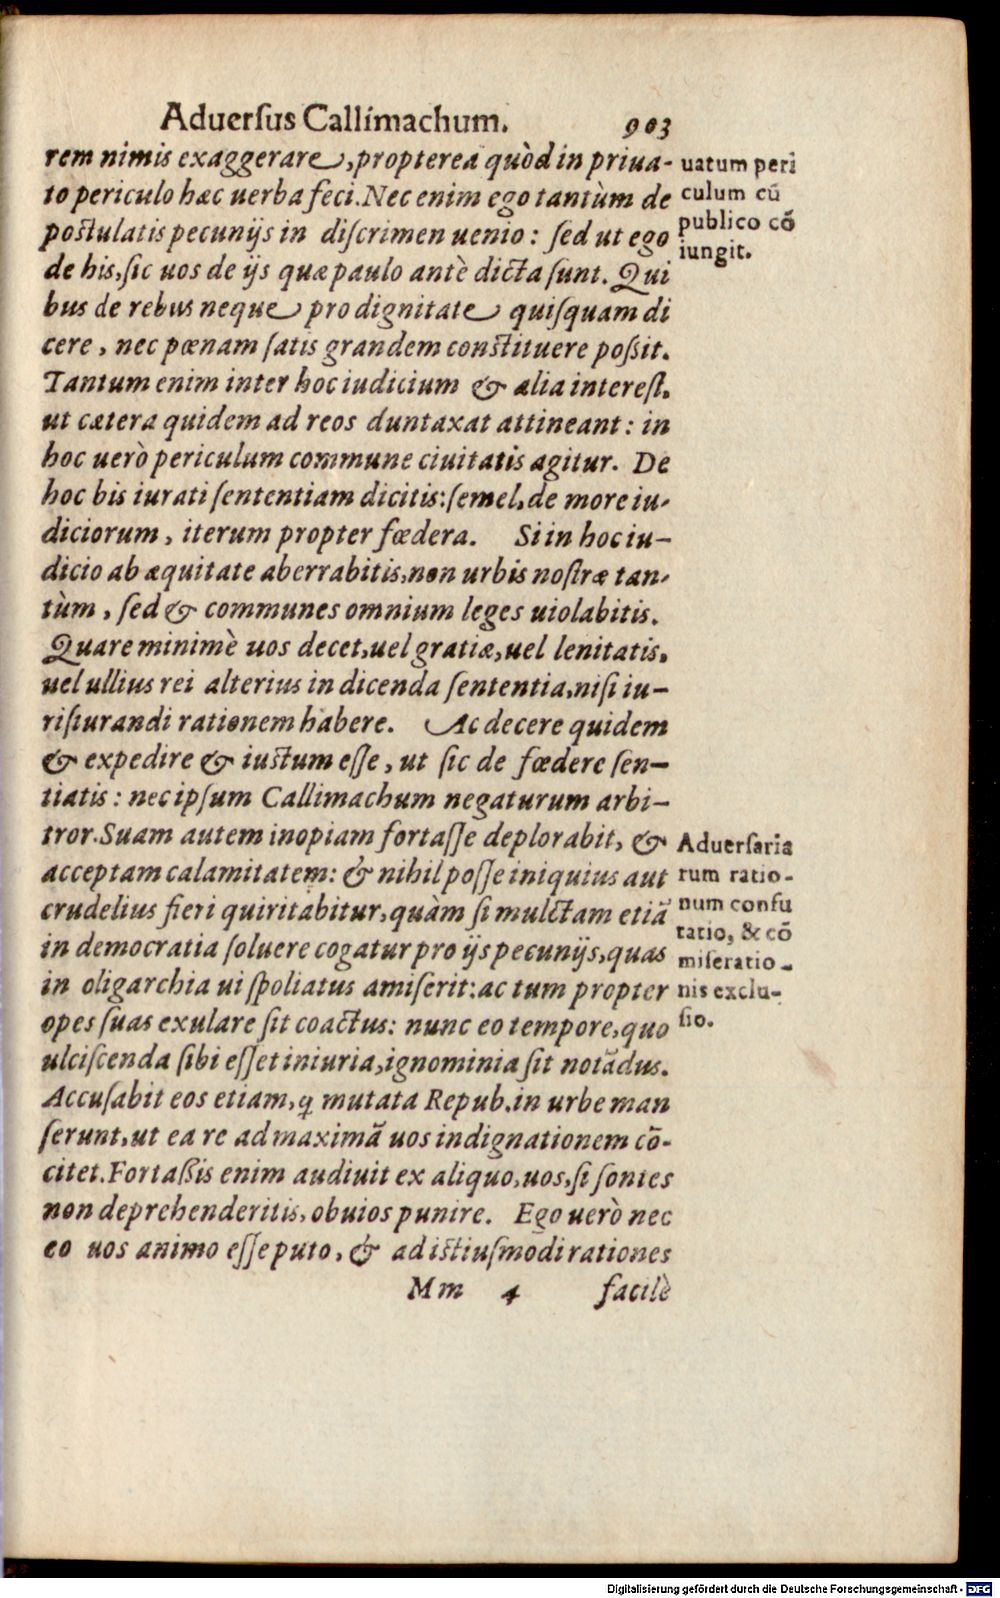 Aduerſus Callimachum. 903
rem nimis exaggerare, propterea quòd in priua-
to periculo hæc uerba feci. Nec enim ego tantùm de
poſtulatis pecunijs in diſcrimen uenio: ſed ut ego
de his, ſic uos de ijs quæ paulo antè dicta ſunt. Qui
bus de rebus neque pro dignitate quiſquam di
cere, nec pœnam ſatis grandem conſtituere poßit.
Tantum enim inter hoc iudicium & alia intereſt,
ut cætera quidem ad reos duntaxat attineant: in
hoc uerò periculum commune ciuitatis agitur. De
hoc bis iurati ſententiam dicitis: ſemel, de more iu-
diciorum, iterum propter fœdera. Si in hoc iu-
dicio ab æquitate aberrabitis, non urbis noſtræ tan-
tùm, ſed & communes omnium leges uiolabitis.
Quare minimè uos decet, uel gratiæ, uel lenitatis,
uel ullius rei alterius in dicenda ſententia, niſi iu-
riſiurandi rationem habere. Ac decere quidem
& expedire & iuſtum eſſe, ut ſic de fœdere ſen-
tiatis: nec ipſum Callimachum negaturum arbi-
tror. Suam autem inopiam fortaſſe deplorabit, &
acceptam calamitatem: & nihil poſſe iniquius aut
crudelius fieri quiritabitur, quàm ſi mulctam etiã
in democratia ſoluere cogatur pro ijs pecunijs, quas
in oligarchia ui ſpoliatus amiſerit: ac tum propter
opes ſuas exulare ſit coactus: nunc eo tempore, quo
ulciſcenda ſibi eſſet iniuria, ignominia ſit notãdus.
Accuſabit eos etiam, ꝗ mutata Repub. in urbe man
ſerunt, ut ea re ad maximã uos indignationem cõ-
citet. Fortaßis enim audiuit ex aliquo, uos, ſi ſontes
non deprehenderitis, obuios punire. Ego uerò nec
eo uos animo eſſe puto, & ad iſtiuſmodi rationes
Mm 4 facilè
uatum peri
culum cũ
publico cõ
iungit.
Aduerſaria
rum ratio-
num confu
tatio, & cõ
miſeratio-
nis exclu-
ſio.
Digitalisierung gefördert durch die Deutsche Forschungsgemeinschaft - DFG